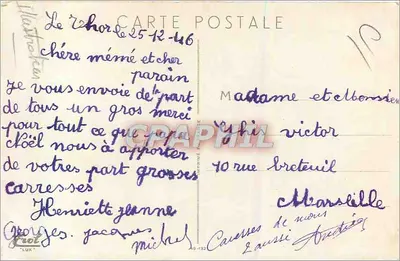 CARTE POSTALE
Le Thor le 25-12-46
chére mémé et cher
parain
je vous envoie de la part
de tous un gros merci
pour tout ce que papa
Noël nous à apporter
de votres part grosses
carresses
Henriette jeanne
Georges jacques
michel
Madame et Monsieur
Ghis victor
70 rue breteuil
Marseille
Caresses de nous
2 aussi
illustrateur
CPAPHIL